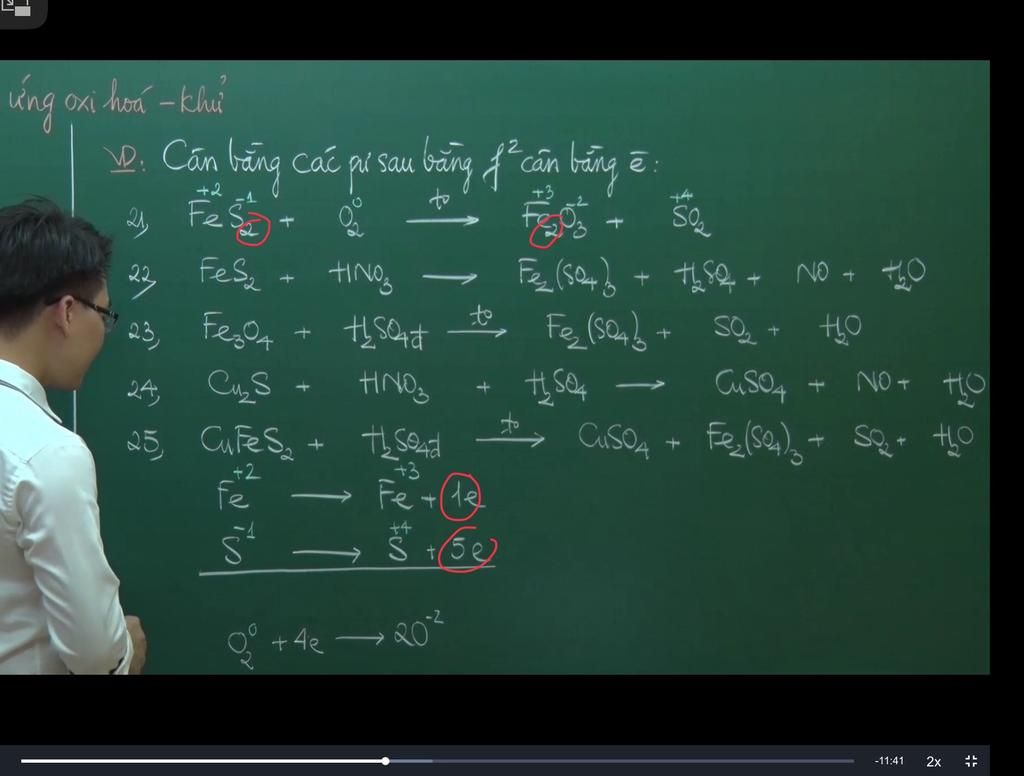 ứng oxi hoá - khử
VD: Cân bằng các pư sau bằng f² cân bằng ē:
21, Fe⁺²S₂⁻¹ + O₂⁰ —t⁰→ Fe₂⁺³O₃⁻² + S⁺⁴O₂
22, FeS₂ + HNO₃ → Fe₂(SO₄)₃ + H₂SO₄ + NO + H₂O
23, Fe₃O₄ + H₂SO₄đ —t⁰→ Fe₂(SO₄)₃ + SO₂ + H₂O
24, Cu₂S + HNO₃ + H₂SO₄ → CuSO₄ + NO + H₂O
25, CuFeS₂ + H₂SO₄đ —t⁰→ CuSO₄ + Fe₂(SO₄)₃ + SO₂ + H₂O
Fe⁺² → Fe⁺³ + 1e
S⁻¹ → S⁺⁴ + 5e
O₂⁰ + 4e → 2O⁻²
-11:41 2x